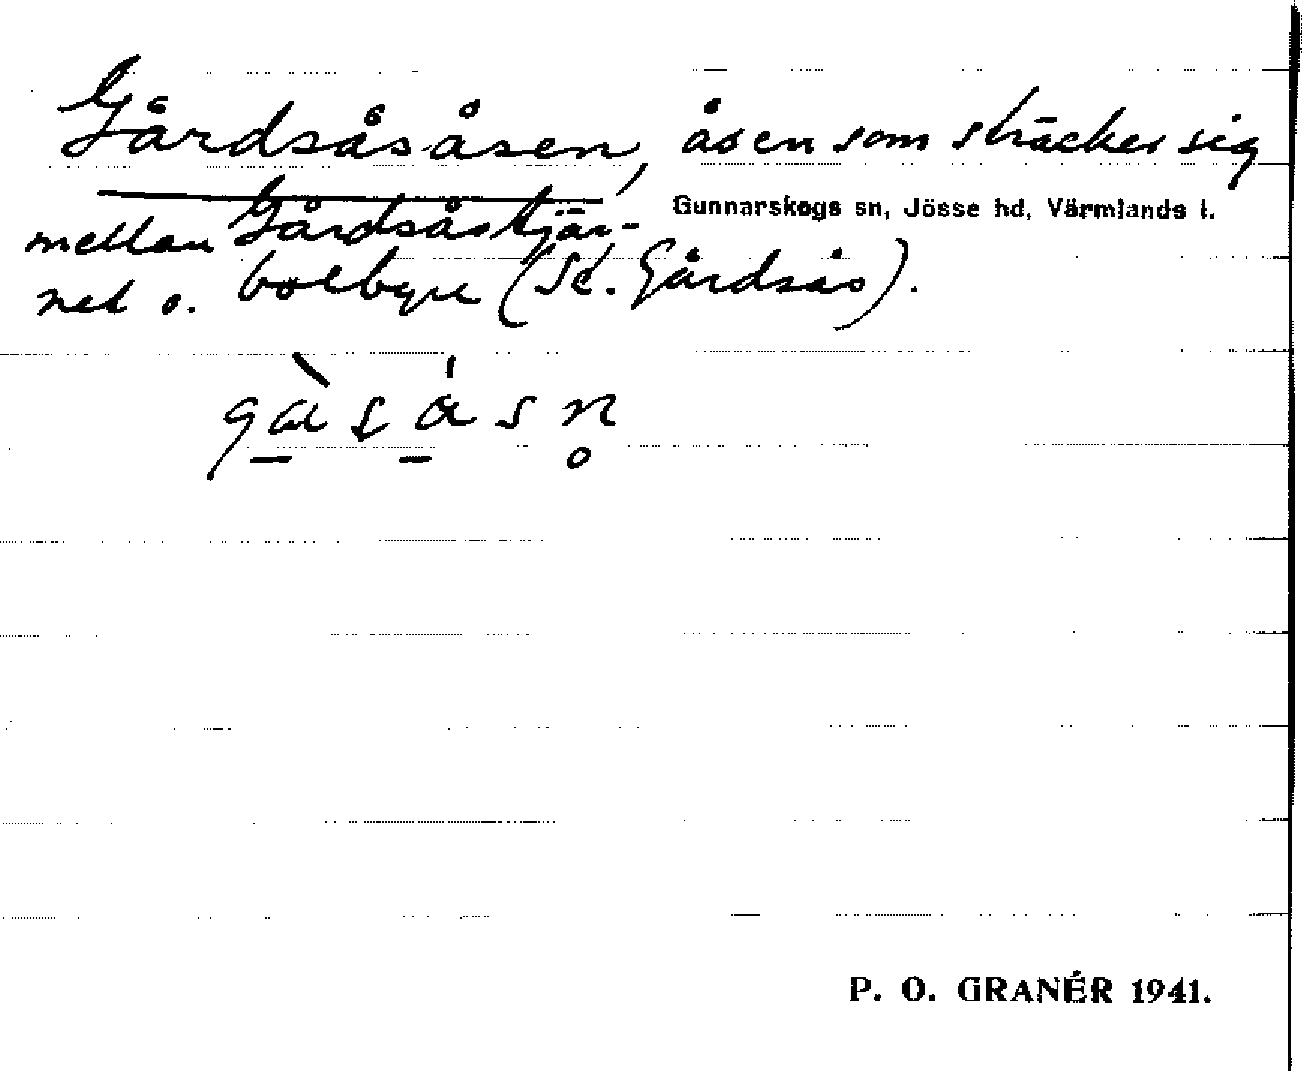 Gårdsåsåsen, åsen som sträcker sig
Gunnarskogs sn, Jösse hd, Värmlands l.
mellan Gårdsåstjär-
net o. bolbyn (St. Gårdsås).
P. O. GRANÉR 1941.